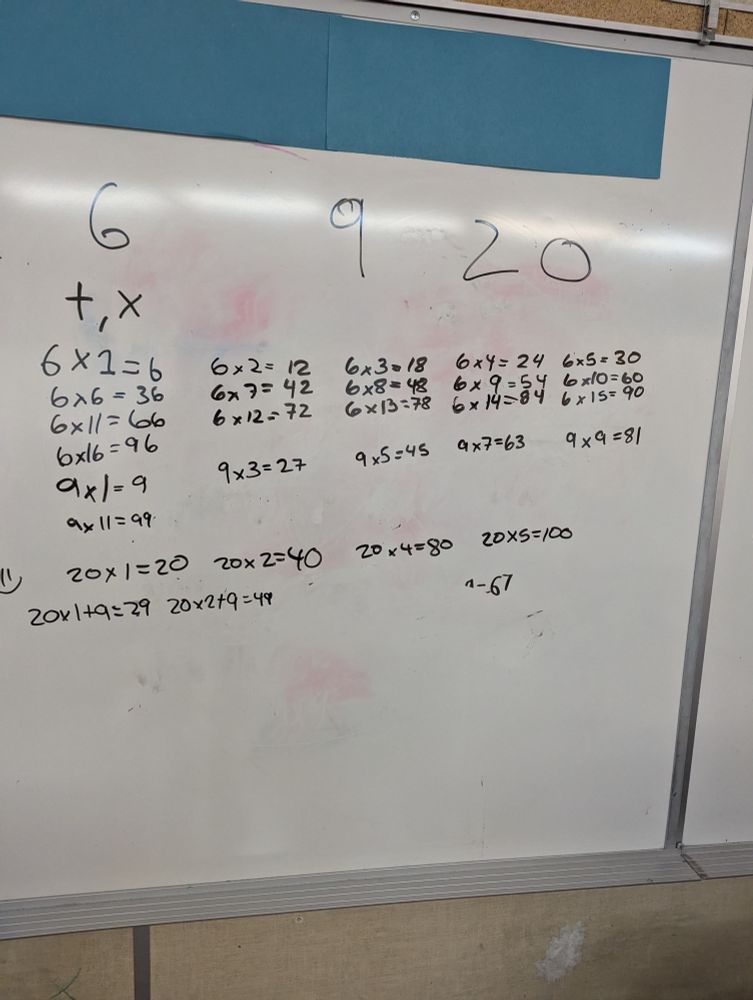 6 9 20
+, x
6 x 1 = 6 6 x 2 = 12 6 x 3 = 18 6 x 4 = 24 6 x 5 = 30
6 x 6 = 36 6 x 7 = 42 6 x 8 = 48 6 x 9 = 54 6 x 10 = 60
6 x 11 = 66 6 x 12 = 72 6 x 13 = 78 6 x 14 = 84 6 x 15 = 90
6 x 16 = 96
9 x 1 = 9 9 x 3 = 27 9 x 5 = 45 9 x 7 = 63 9 x 9 = 81
9 x 11 = 99
20 x 1 = 20 20 x 2 = 40 20 x 4 = 80 20 x 5 = 100
20 x 1 + 9 = 29 20 x 2 + 9 = 49
67